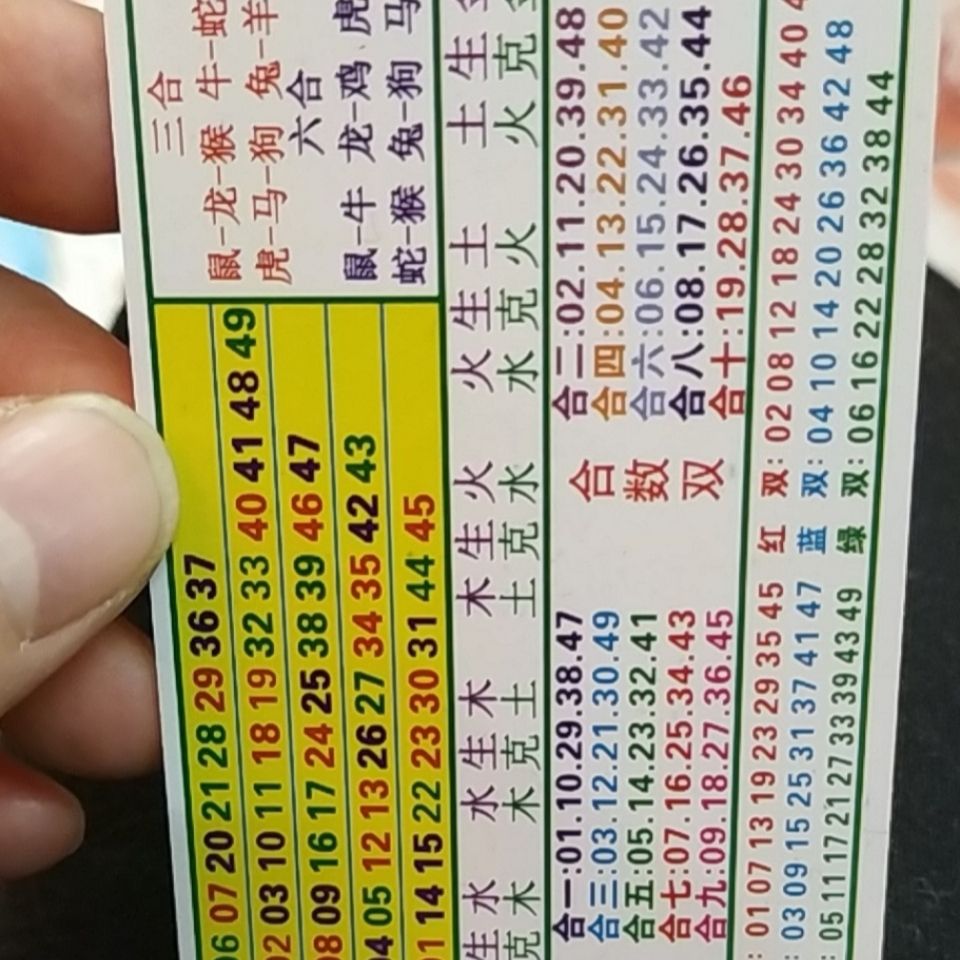 06 07 20 21 28 29 36 37
02 03 10 11 18 19 32 33 40 41 48 49
08 09 16 17 24 25 38 39 46 47
04 05 12 13 26 27 34 35 42 43
01 14 15 22 23 30 31 44 45
三合
鼠-龙-猴 牛-蛇
虎-马-狗 兔-羊
六合
鼠-牛 龙-鸡 虎
蛇-猴 兔-狗 马
生水 水生木 木生火 火生土 土生
克木 木克土 土克水 水克火 火克
合一:01.10.29.38.47
合三:03.12.21.30.49
合五:05.14.23.32.41
合七:07.16.25.34.43
合九:09.18.27.36.45
合
数
双
合二:02.11.20.39.48
合四:04.13.22.31.40
合六:06.15.24.33.42
合八:08.17.26.35.44
合十:19.28.37.46
: 01 07 13 19 23 29 35 45 红双: 02 08 12 18 24 30 34 40
: 03 09 15 25 31 37 41 47 蓝双: 04 10 14 20 26 36 42 48
: 05 11 17 21 27 33 39 43 49 绿双: 06 16 22 28 32 38 44